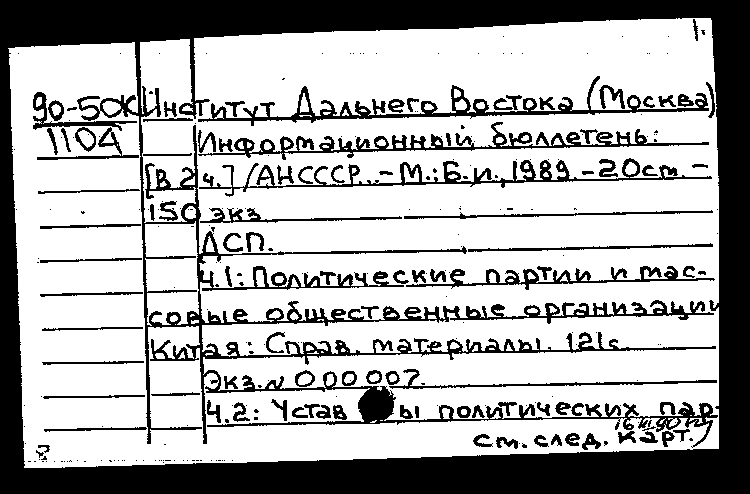 1.
90-50К Институт Дальнего Востока (Москва)
1104 Информационный бюллетень:
[В 2 ч.] / АНСССР...-М.:Б.и., 1989.-20см.-
150 экз
ДСП.
Ч.1: Политические партии и мас-
совые общественные организации
Китая: Справ. материалы. 121с
Экз.N 000007.
Ч.2: Уставы политических пар-
см. след. карт.
8